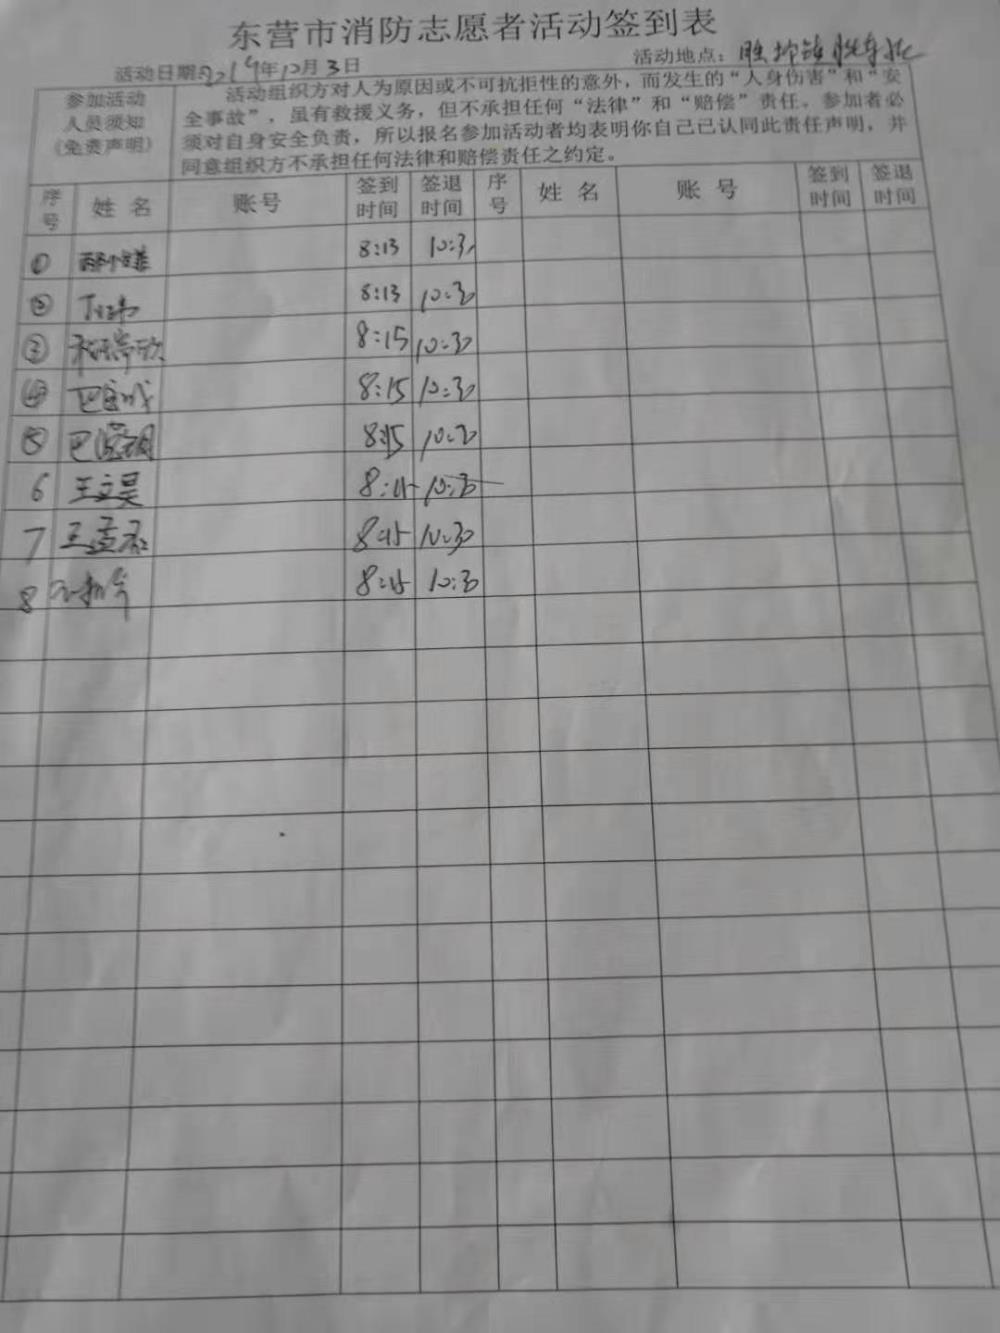 东营市消防志愿者活动签到表
活动日期：2019年10月3日 活动地点：
参加活动人员须知(免责声明)
活动组织方对人为原因或不可抗拒性的意外，而发生的“人身伤害”和“安
全事故”，虽有救援义务，但不承担任何“法律”和“赔偿”责任。参加者必
须对自身安全负责，所以报名参加活动者均表明你自己已认同此责任声明，并
同意组织方不承担任何法律和赔偿责任之约定。
序号 姓名 账号 签到时间 签退时间 序号 姓名 账号 签到时间 签退时间
① 8:13 10:30
② 8:13 10:30
③ 8:15 10:30
④ 8:15 10:30
⑤ 8:15 10:30
6 王文昊 8:15 10:30
7 王孟君 8:15 10:30
8 8:15 10:30